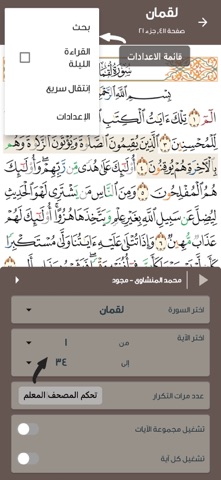 لقمان
صفحة ٤١١, جزء ٢١
بحث
القراءة
الليلة
إنتقال سريع
الإعدادات
قائمة الاعدادات
سُورَةُ لُقْمَان
بِسْمِ اللَّهِ الرَّحْمَٰنِ الرَّحِيمِ
الٓمٓ ١ تِلْكَ ءَايَٰتُ ٱلْكِتَٰبِ
لِّلْمُحْسِنِينَ ٣ ٱلَّذِينَ يُقِيمُونَ ٱلصَّلَوٰةَ وَيُؤْتُونَ ٱلزَّكَوٰةَ وَهُم
بِٱلْءَاخِرَةِ هُمْ يُوقِنُونَ ٤ أُو۟لَٰٓئِكَ عَلَىٰ هُدًى مِّن رَّبِّهِمْ وَأُو۟لَٰٓئِكَ
هُمُ ٱلْمُفْلِحُونَ ٥ وَمِنَ ٱلنَّاسِ مَن يَشْتَرِى لَهْوَ ٱلْحَدِيثِ
لِيُضِلَّ عَن سَبِيلِ ٱللَّهِ بِغَيْرِ عِلْمٍ وَيَتَّخِذَهَا هُزُوًا أُو۟لَٰٓئِكَ لَهُمْ
عَذَابٌ مُّهِينٌ ٦ وَإِذَا تُتْلَىٰ عَلَيْهِ ءَايَٰتُنَا وَلَّىٰ مُسْتَكْبِرًا
محمد المنشاوي - مجود
اختر السورة لقمان
اختر الآية من ١
إلى ٣٤
عدد مرات التكرار تحكم المصحف المعلم
تشغيل مجموعة الآيات
تشغيل كل آية